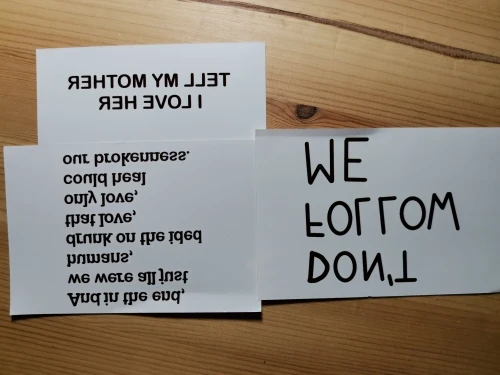 TELL MY MOTHER
I LOVE HER
And in the end,
we were all just
humans,
drunk on the ided
that love,
only love,
could heal
our brokenness.
DON'T
FOLLOW
ME